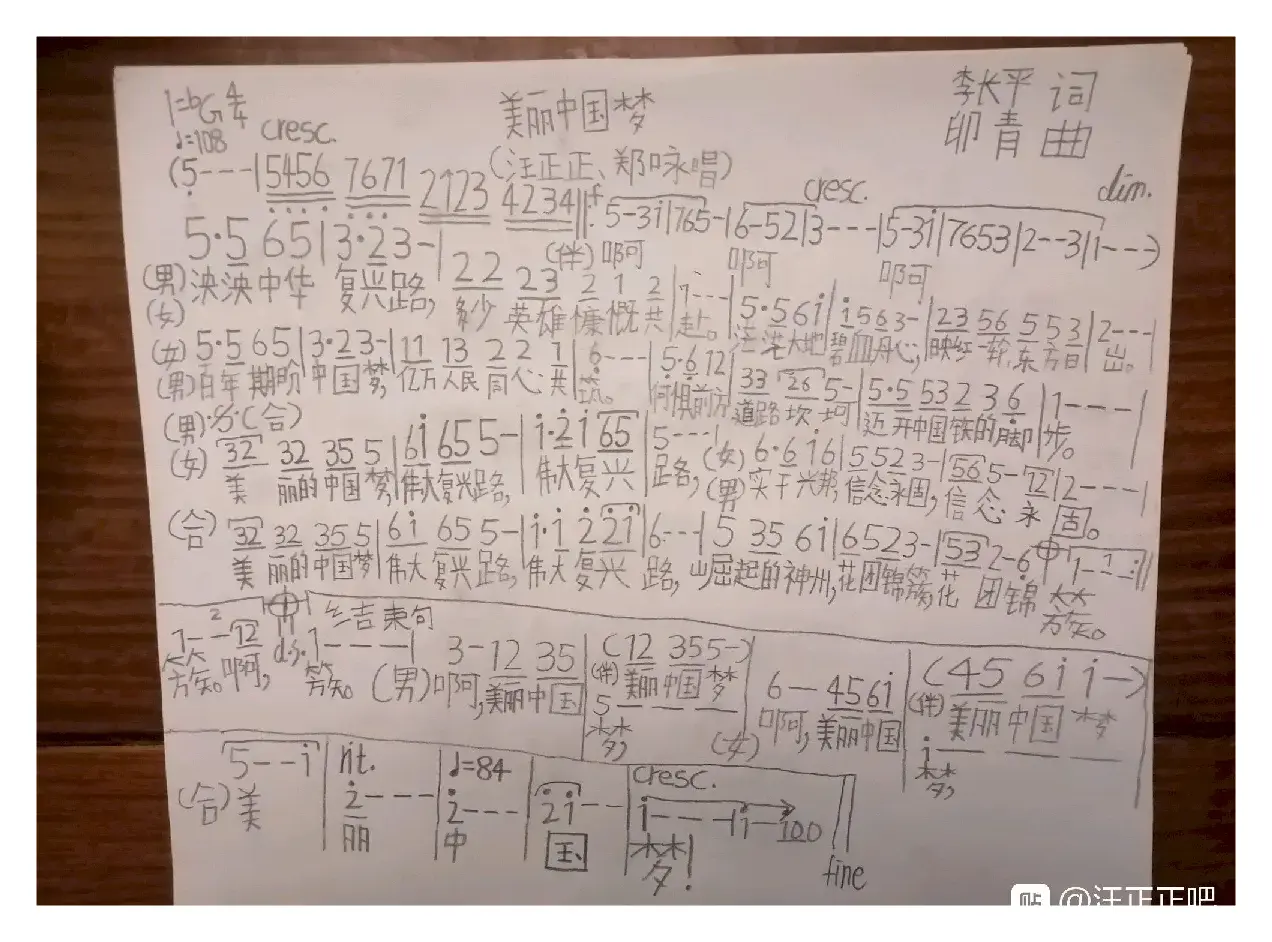 1=bG 4/4 美丽中国梦 李长平 词
♩=108 cresc. 印青 曲
(汪正正、郑咏唱)
(5---|5456 7671 2123 4234‖: f 5-3i|765-|6-52|3---|5-3i|7653|2--3|1---)
cresc. dim.
(伴)啊 啊 啊
5·5 65|3·23-|22 23 2 1 2|7---|5·56i|i563-|23 56 5 53|2---|
(男)泱泱中华 复兴路, 多少 英雄慷慨共赴。茫茫大地碧血丹心,映红一轮东方日出。
(女)
(女)5·5 65|3·23-|11 13 2 2 1|6---|5·6 12|33 26 5-|5·5 53 2 3 6|1---|
(男)百年期阶 中国梦,亿万人民同心共筑。何惧前方道路坎坷迈开中国铁的脚步。
(男)·𝄋·(合)
(女)32 32 35 5|6i 65 5-|i·2i65|5---|6·6i6|5523-|56 5-12|2---|
美 丽的中国梦,伟大复兴路,伟大复兴路,(女)(男)实干兴邦,信念永固,信念永固。
(合)32 32 35 5|6i 65 5-|i·i 2 2i|6---|5 35 6i|6523-|53 2-6|1---:‖
美 丽的中国梦伟大复兴路,伟大复兴路,屹起的神州,花团锦簇,花团锦簇。
结束句
1--12 d.s. 1---| 3-12 35|(12 355-)|6-- 456i|(45 6i i-)
簇。啊, 簇。(男)啊,美丽中国|(伴)美丽中国梦 啊,美丽中国 (伴)美丽中国 梦
5--- i---
梦,(女) 梦,
5--i|rit. 2---|♩=84 2---|2i--|cresc. i---|i-100‖
(合)美 丽 中 国 梦!
fine
贴 @汪正正吧